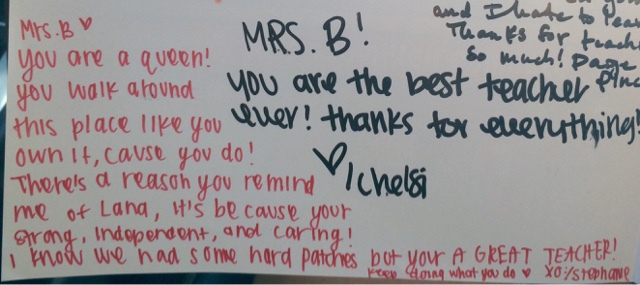 Mrs. B ♥
you are a queen!
you walk around
this place like you
own it, cause you do!
There's a reason you remind
me of Lana, it's because your
strong, independent, and caring!
I know we had some hard patches but your A GREAT TEACHER!
keep doing what you do ♥ XO;/stephanie
MRS. B!
you are the best teacher
ever! thanks for everything!
♥ Ichelsi
and I hate to
Thanks for
so much! Page